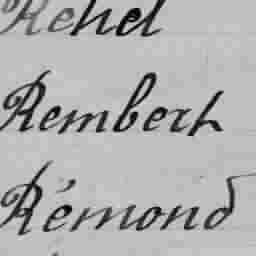 Rehel
Rembert
Rémond